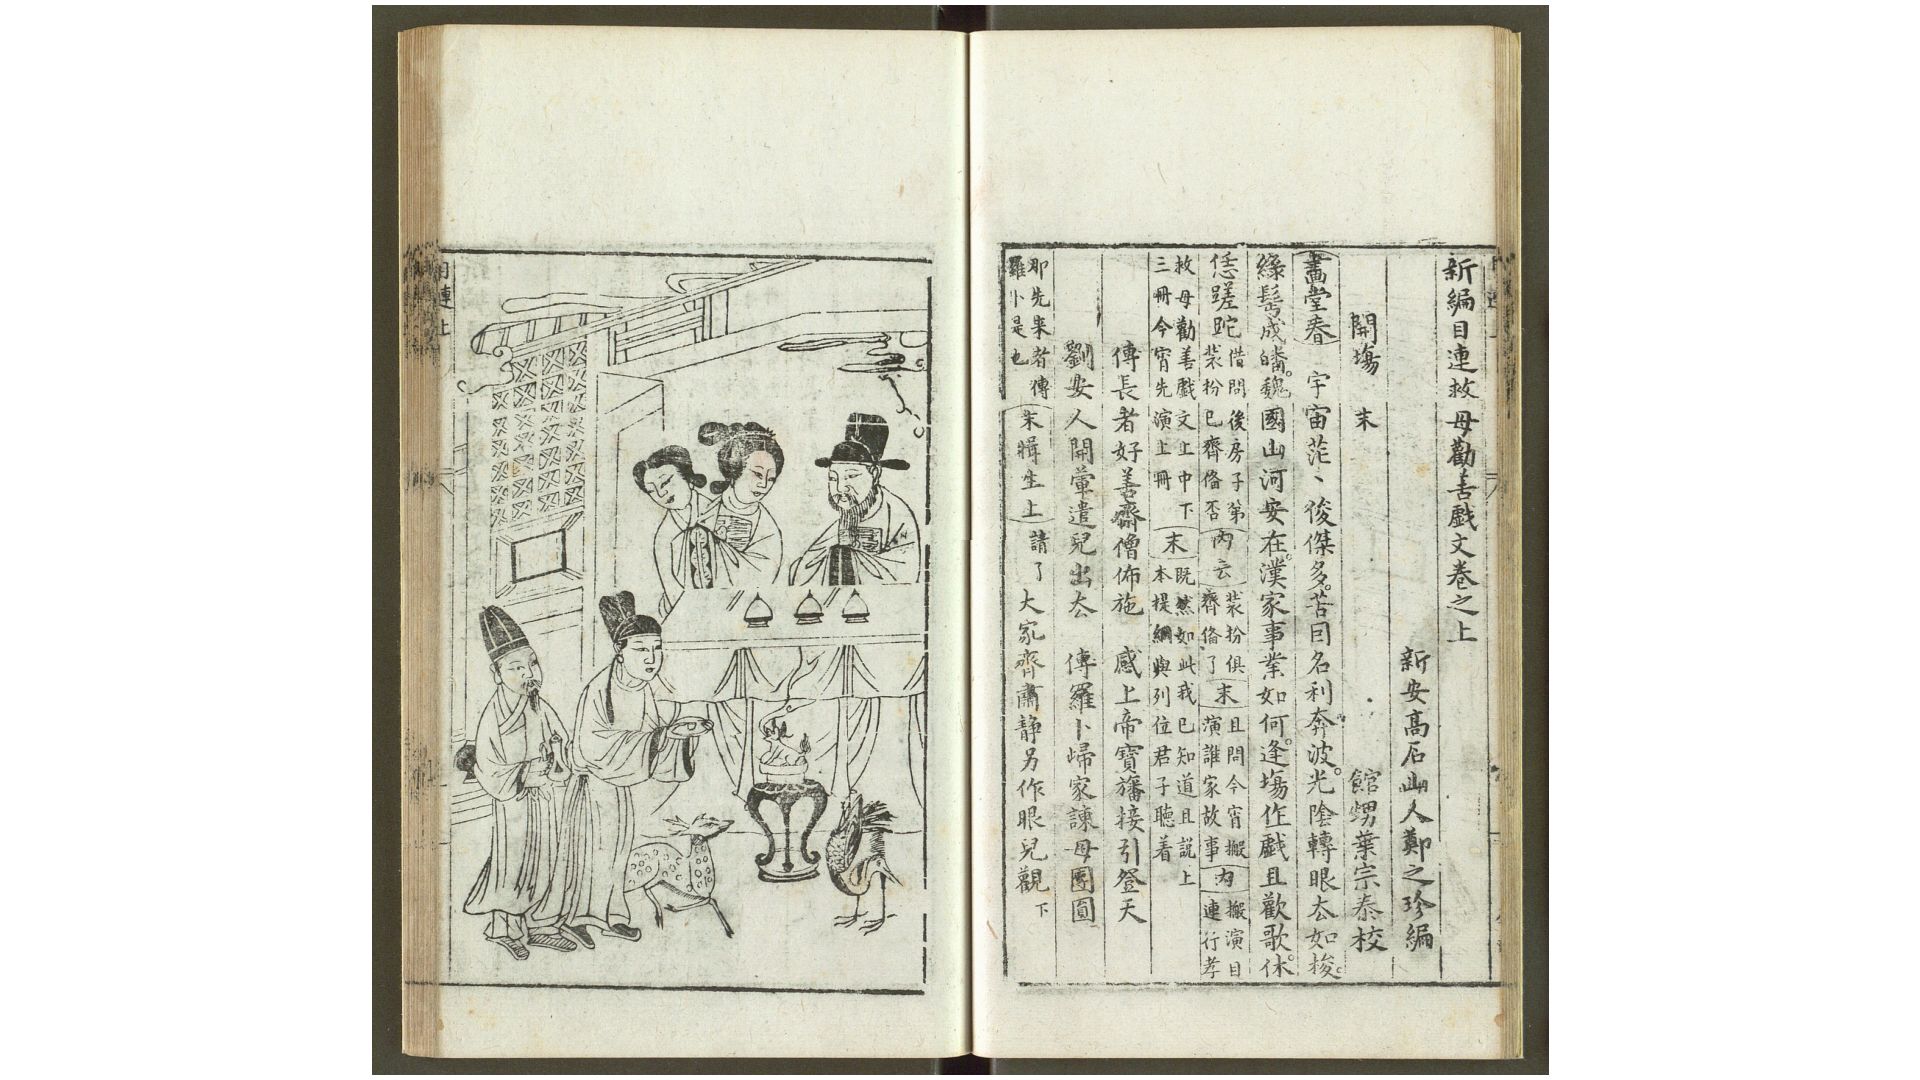 新編目連救母勸善戲文卷之上
新安高石山人鄭之珍編
館甥葉宗泰校
開塲 末
畫堂春 宇宙茫、俊傑多。苦囙名利奔波。光陰轉眼去如梭。
緣髩成皤。魏國山河安在。漢家事業如何。逢塲作戲且歡歌。休
恁蹉跎 借問後房子弟裝扮已齊備否 内云 裝扮俱齊備了 末 且問今宵搬演誰家故事 内 搬演目連行孝
救母勸善戲文上中下三冊今宵先演上冊 末 既然如此我已知道且説上本提綱與列位君子聽着
傅長者好善齋僧佈施 感上帝寳旛接引登天
劉安人開葷遣兒出去 傅羅卜歸家諫母團圓
那先來者傅羅卜是也 末揖生上 請了大家齊肅静另作眼兒觀 下
目連上